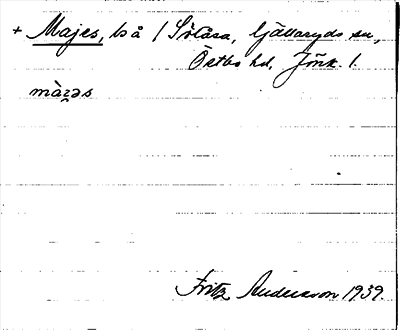 + Majes, bs å / Sölåsa, Gällaryds sn,
Östbo hd, Jönk. l.
Fritz Andersson 1939.